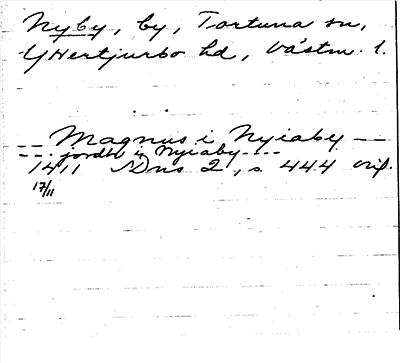 Nyby, by, Tortuna sn,
Yttertjurbo hd, Västm. l.
-- Magnus i Nyiaby --
--- jordh i Nyiaby ---
1411 SDns 2, s 444 orig.
17/11